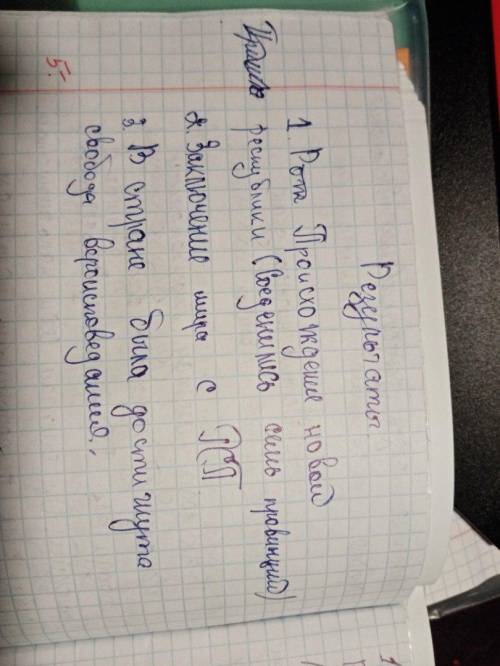 Результаты
1. Происхождение новой
республики (Соединились семь провинций)
2. Заключение мира с
3. В стране была достигнута
свобода вероисповедания.
5-